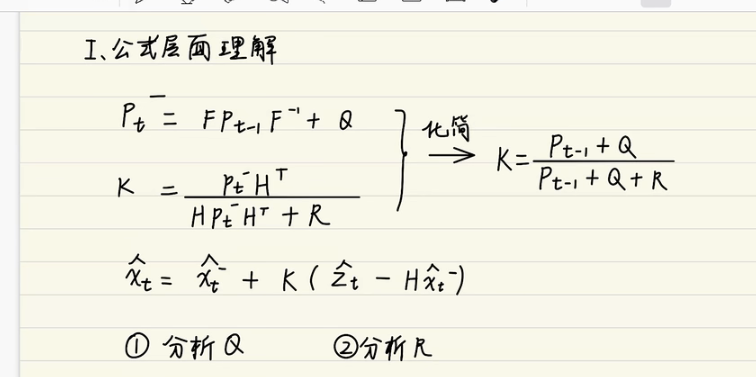 I、公式层面理解
P_t^- = F P_{t-1} F^{-1} + Q
化简
K = \frac{P_t^- H^T}{H P_t^- H^T + R}
K = \frac{P_{t-1} + Q}{P_{t-1} + Q + R}
\hat{x}_t = \hat{x}_t^- + K ( \hat{z}_t - H \hat{x}_t^- )
① 分析Q ②分析R